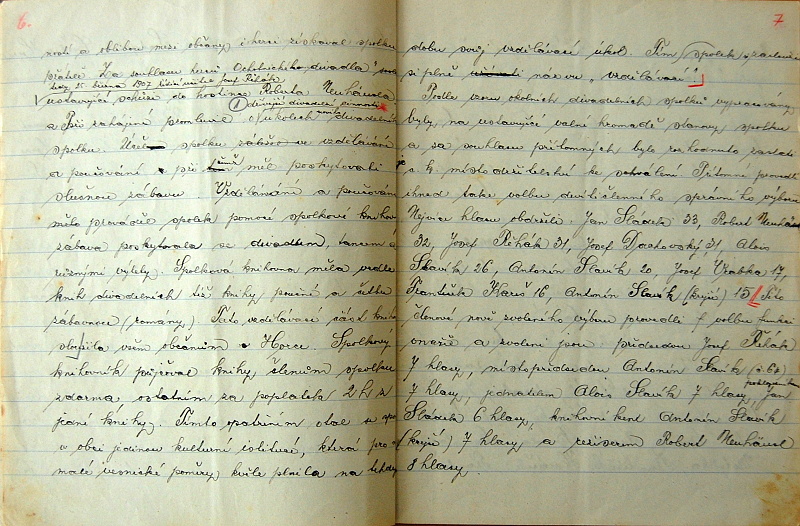 6.
ností a oblibou mezi občany i herci získával spolku
přátele. Za souhlasu herců "Ochotnického divadla" svolal
tedy 25. března 1907 řídící učitel Josef Řihák
ustavující schůzi do hostince Roberta Neuhäusla
a Při zahájení promluvil o úkolech divadelního
dřívější divadelní činnosti
spolku. Účel spolku záležel ve vzdělávání
a poučování při čemž měl poskytovati
slušnou zábavu. Vzdělávání a poučování
mělo prováděti spolek pomocí spolkové knihovny
zábava poskytovala se divadlem, tancem a
různými výlety. Spolková knihovna měla vedle
knih divadelních též knihy poučné a četbu
zábavnou (romány). Tato vzdělávací část knihovny
sloužila všem občanům v Horce. Spolkový
knihovník půjčoval knihy členům spolku
zdarma ostatním za poplatek 2 h z
jedné knihy. Tímto opatřením stal se spolek
v obci jedinou kulturní institucí, která pro
malé vesnické poměry kvile plnila na tehdejší
7
dobu svůj vzdělávací úkol. Tím spolek zasloužil
si plně názvu „vzdělávací".
Podle vzoru okolních divadelních spolků vypracovány
byly na ustavující valné hromadě stanovy spolku
a za souhlasu přítomných bylo rozhodnuto zaslati
c. k. místodržitelství ke schválení. Přítomní provedli
ihned také volbu devítičlenného správního výboru
Nejvíce hlasů obdrželi: Jan Sladeta 33, Robert Neuhäusl
32, Josef Řihák 31, Josef Dostovský 31, Alois
Slavík 26, Antonín Slavík 20, Josef Vrabka 17,
František Kareš 16, Antonín Slavík (krejčí) 15. Tito
členové nově zvoleného výboru provedli volbu funkcí
onářů a zvoleni jsou předsedou Josef Řihák
7 hlasy, místopředsedou Antonín Slavík (č. 62)
7 hlasy, jednatelem Alois Slavík 7 hlasy, pokladníkem Jan
Sladeta 6 hlasy, knihovníkem Antonín Slavík
(krejčí) 7 hlasy a režisérem Robert Neuhäusl
8 hlasy.